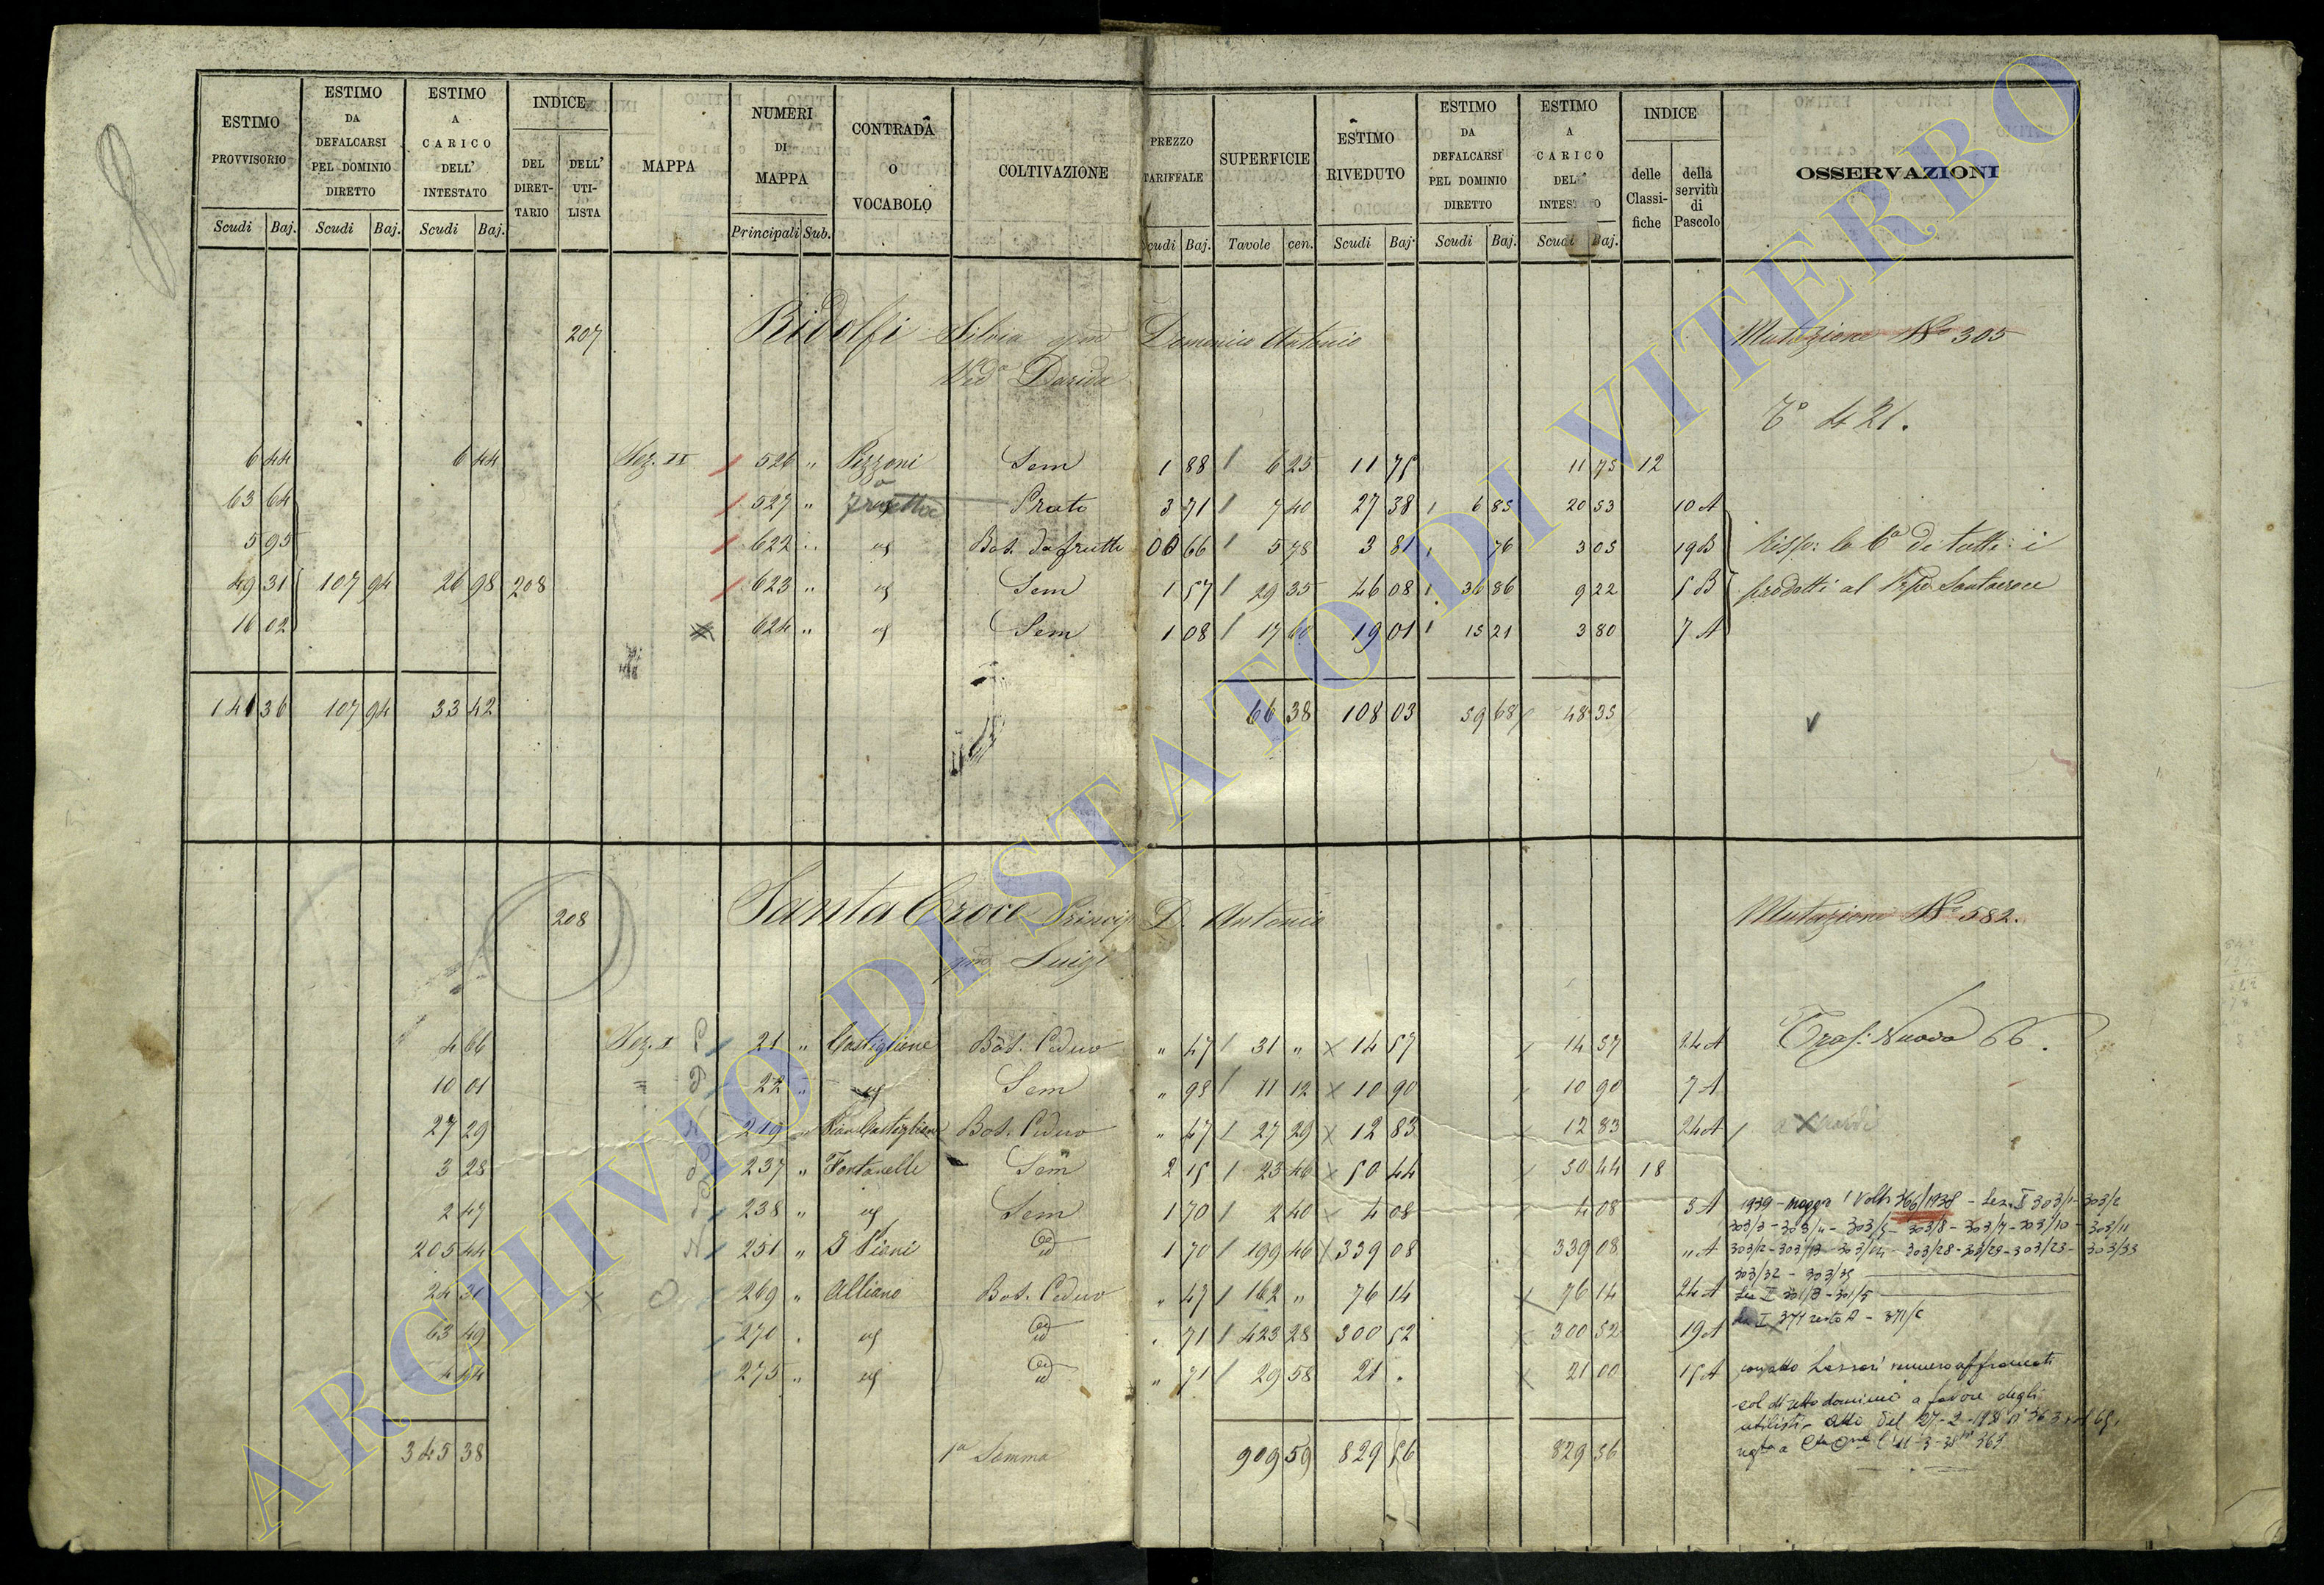 ESTIMO PROVVISORIO | ESTIMO DA DEFALCARSI PEL DOMINIO DIRETTO | ESTIMO A CARICO DELL' INTESTATO | INDICE | MAPPA | NUMERI DI MAPPA | CONTRADA O VOCABOLO | COLTIVAZIONE | PREZZO TARIFFALE | SUPERFICIE | ESTIMO RIVEDUTO | ESTIMO DA DEFALCARSI PEL DOMINIO DIRETTO | ESTIMO A CARICO DELL' INTESTATO | INDICE | OSSERVAZIONI
DEL DIRET-TARIO | DELL' UTI-LISTA | delle Classi-fiche | della servitù di Pascolo
Scudi Baj. | Scudi Baj. | Scudi Baj. | Principali Sub. | Scudi Baj. | Tavole cen. | Scudi Baj. | Scudi Baj. | Scudi Baj.
207 Ridolfi Silvia qm Domenico Antonio Mutazione No 305
Ved.a Davide
To 421.
6 44 6 44 Sez. II 526 " Pezzoni Sem 1 88 6 25 11 75 11 75 12
63 64 527 " Prato 3 71 7 40 27 38 6 85 20 53 10 A
5 95 622 " Bos. da frutto 66 5 78 3 81 76 3 05 19 B Risp: la di tutti i
49 31 107 94 26 98 208 623 " Sem 1 57 29 35 46 08 36 86 9 22 5 B prodotti al Santacroce
16 02 624 " Sem 1 08 17 60 19 01 15 21 3 80 7 A
141 36 107 94 33 42 66 38 108 03 59 68 48 35
208 Santa Croce Princip D. Antonio Mutazione No 582.
qm Luigi
4 66 Sez. I 21 " Castiglione Bos. Ceduo " 47 31 " 14 57 14 57 24 A Tras: Nuova 66.
10 01 22 " Sem " 98 11 12 10 90 10 90 7 A
27 29 219 " Pian Castiglione Bos. Ceduo " 47 27 29 12 83 12 83 24 A
3 28 237 " Fontanelle Sem 2 15 23 46 50 44 50 44 18
2 47 238 " Sem 1 70 2 40 4 08 4 08 3 A
205 44 251 " I Piani 1 70 199 46 339 08 339 08 " A
24 31 269 " Alliano Bos. Ceduo " 47 162 " 76 14 76 14 24 A
63 49 270 71 423 28 300 52 300 52 19 A
4 44 275 " " 71 29 58 21 . 21 00 15 A
345 38 1a Somma 909 59 829 56 829 56
1939 - Volt. 366/1938 - Sez. I 303/1 - 303/2
303/3 - 303/4 - 303/5 - 303/8 - 303/7 - 303/10 - 303/11
303/32 - 303/35
Sez II 301/3 - 301/5
Sez I 371 resto A - 371/C
affrancati
col diretto dominio a favore degli
utilisti - Atto del 27-2-
ARCHIVIO DI STATO DI VITERBO